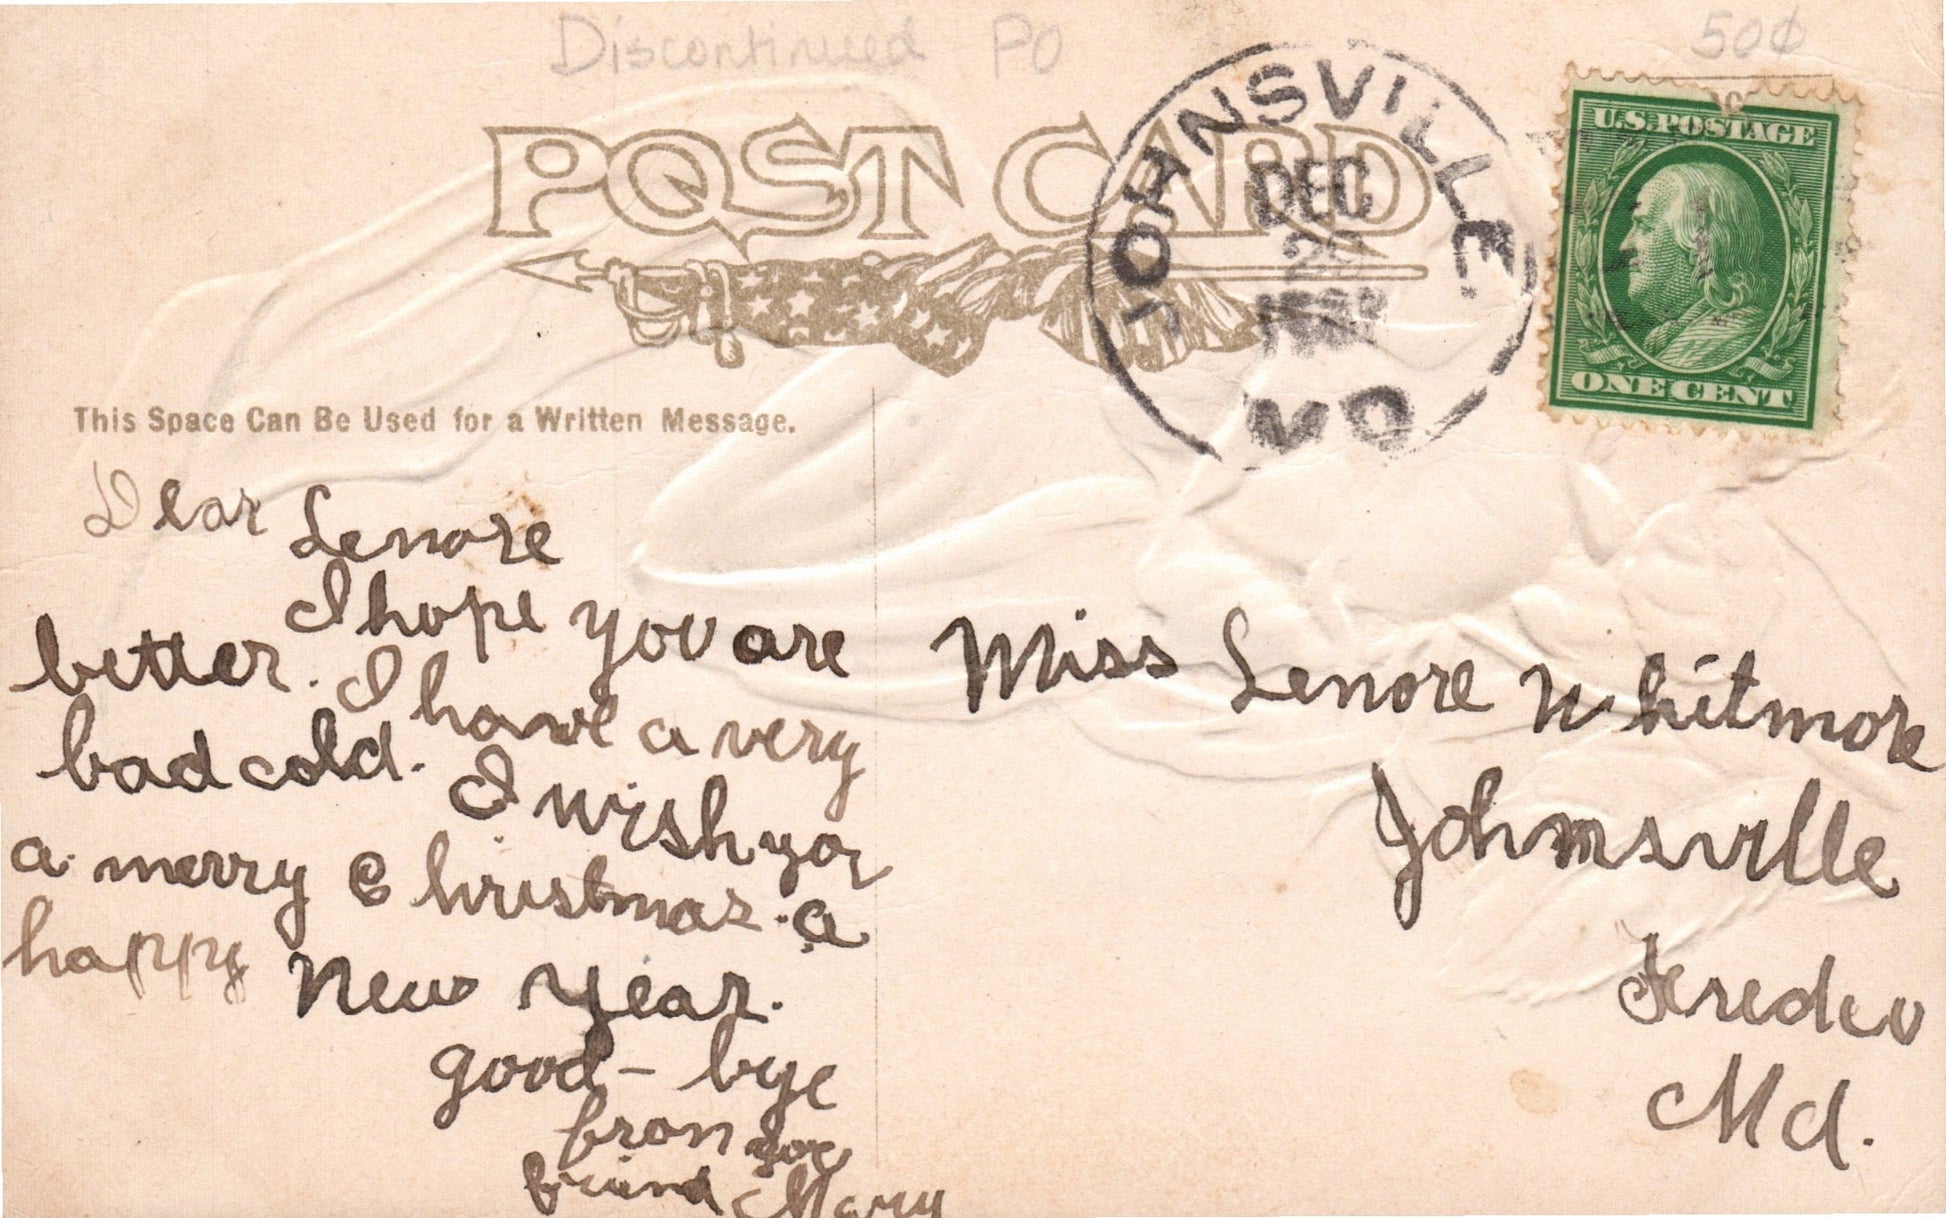 Discontinued PO
50¢
POST CARD
JOHNSVILLE
DEC
MD
U.S. POSTAGE
ONE CENT
This Space Can Be Used for a Written Message.
Dear Lenore
I hope you are
better. I have a very
bad cold. I wish yor
a merry Christmas. a
happy New Year.
good-bye
from yor
friend Mary
Miss Lenore Whitmore
Johmsville
Md.